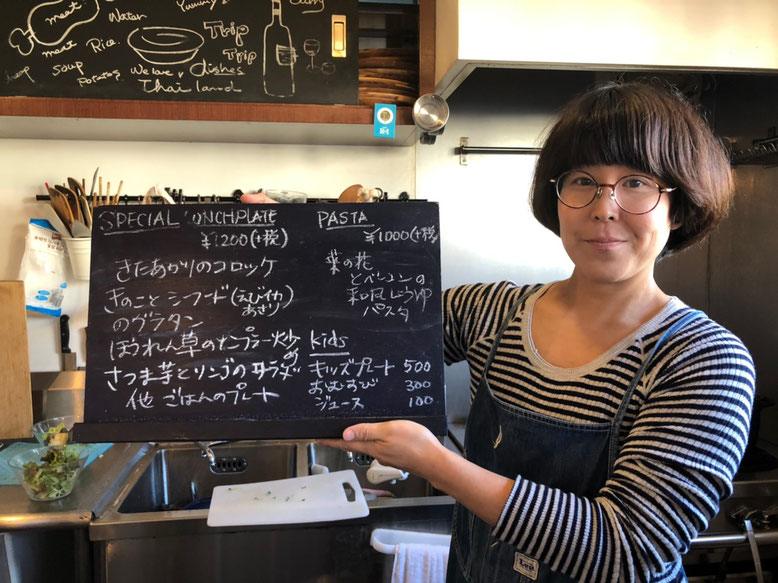 meat
Water
Yummy
meat
Rice
soup
Potatoes
We love dishes
Thailand
Trip
Trip
Curry
SPECIAL LUNCHPLATE
¥1200(+税)
きたあかりのコロッケ
きのことシーフード(えび イカ あさり)
のグラタン
ほうれん草のナンプラー炒め
さつま芋とリンゴのサラダ
他 ごはんのプレート
PASTA
¥1000(+税)
菜の花
とベーコンの
和風しょうゆ
パスタ
kids
キッズプレート 500
おむすび 300
ジュース 100
Lee